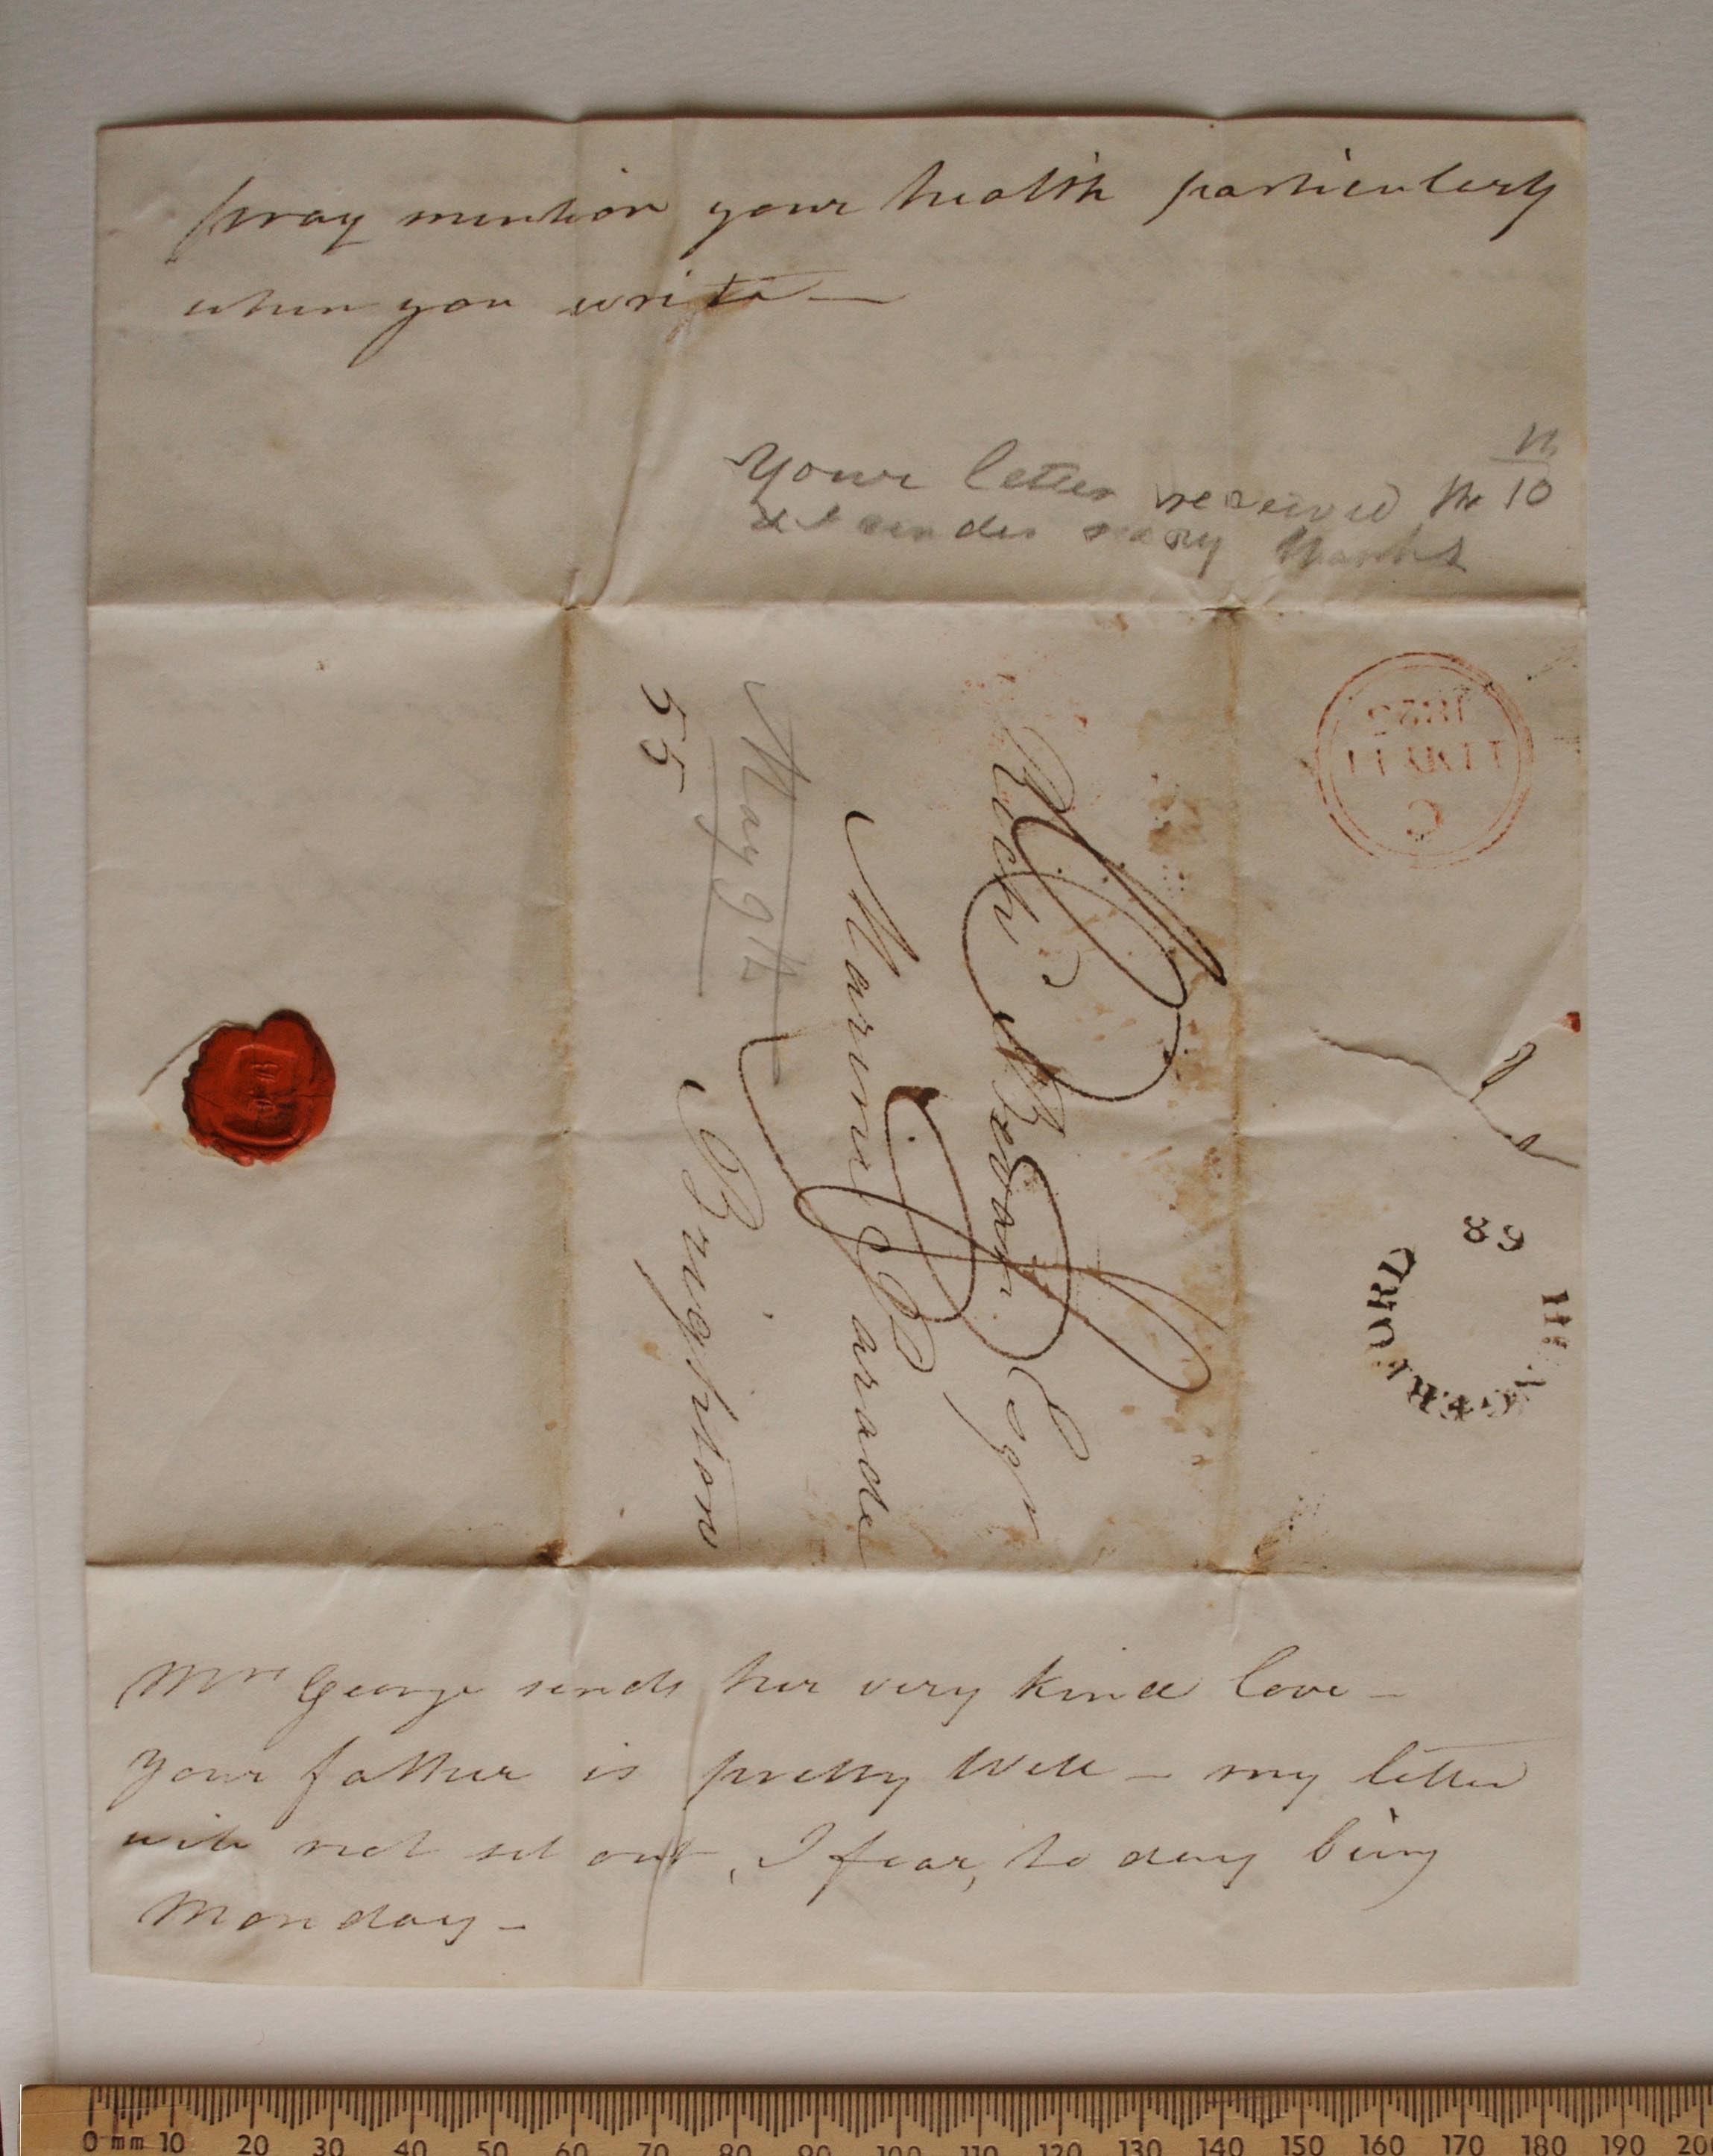 pray mention your health particularly
when you write —
Your letter received the 10
many thanks
Richd Bevan Esqr
Marine Parade
Brighton
May 9th
55
C
11 MR 11
1822
89
HUNGERFORD
Mrs George sends her very kind love —
your father is pretty well — my letter
will not set out, I fear, to day being
Monday —
0 mm 10 20 30 40 50 60 70 80 90 100 110 120 130 140 150 160 170 180 190 200